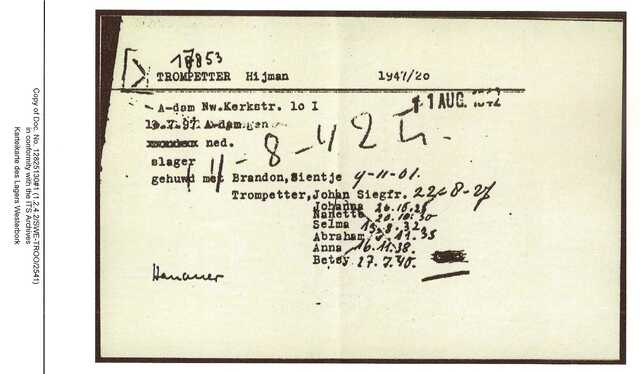 18853
TROMPETTER Hijman 1947/20
11 AUG. 1942
A-dam Nw.Kerkstr. 10 I
13.7.97 A-dam.gen
xxxxxxxx ned.
11-8-42
slager
gehuwd met Brandon,Sientje 9-11-01.
Trompetter,Johan Siegfr. 22-8-27
Johanna
Nanette 20.10.30
Selma 15.8.32
Abraham 11.35
Anna 16.11.38.
Betsy 27.7.40.
Hanauer
Copy of Doc. No. 12825130#1 (1.2.4.2/SWE-TROO/2541)
in conformity with the ITS Archives
Karteikarte des Lagers Westerbork